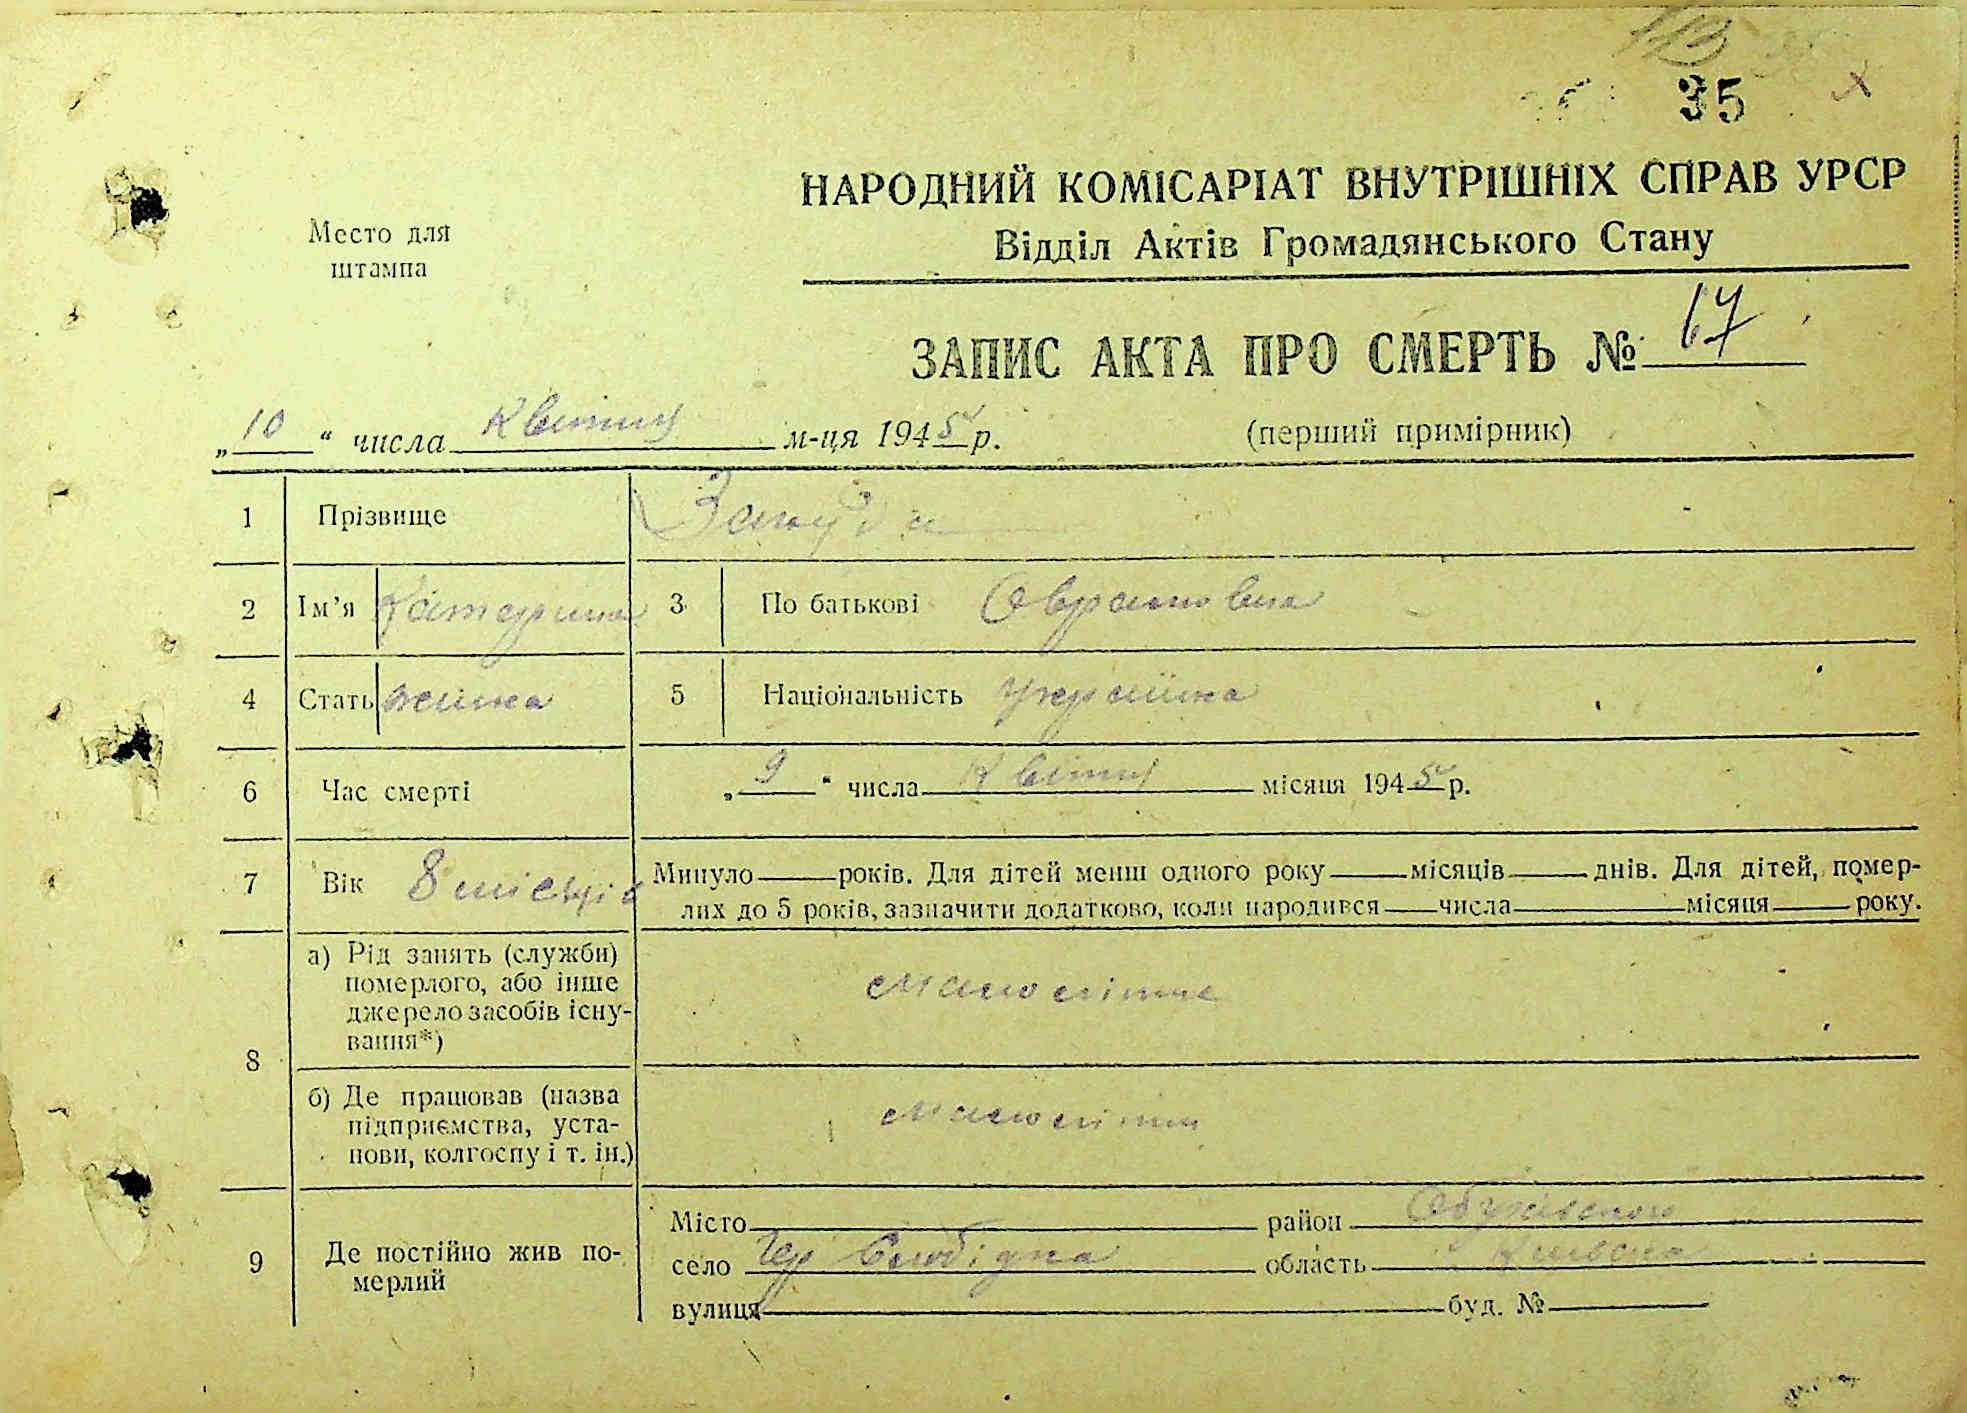 35
Место для
штампа
НАРОДНИЙ КОМІСАРІАТ ВНУТРІШНІХ СПРАВ УРСР
Відділ Актів Громадянського Стану
ЗАПИС АКТА ПРО СМЕРТЬ № 17
„10“ числа Квітня м-ця 1945 р.
(перший примірник)
1 Прізвище
2 Ім’я Катерина 3 По батькові Оврамовна
4 Стать жінка 5 Національність українка
6 Час смерті „9“ числа Квітня місяця 1945 р.
7 Вік 8 місяців Минуло років. Для дітей менш одного року місяців днів. Для дітей, помер-
лих до 5 років, зазначити додатково, коли народився числа місяця року.
8 а) Рід занять (служби)
померлого, або інше
джерело засобів існу-
вання*)
малолітнє
б) Де працював (назва
підприємства, уста-
нови, колгоспу і т. ін.)
малолітнє
9 Де постійно жив по-
мерлий
Місто район Обухівського
село Чер Слобідка область Київська
вулиця буд. №